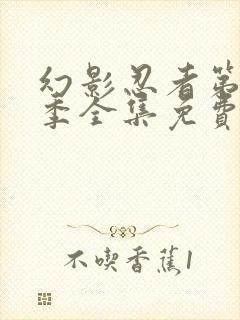 幻影忍者第
季全集免費
不喫香蕉1